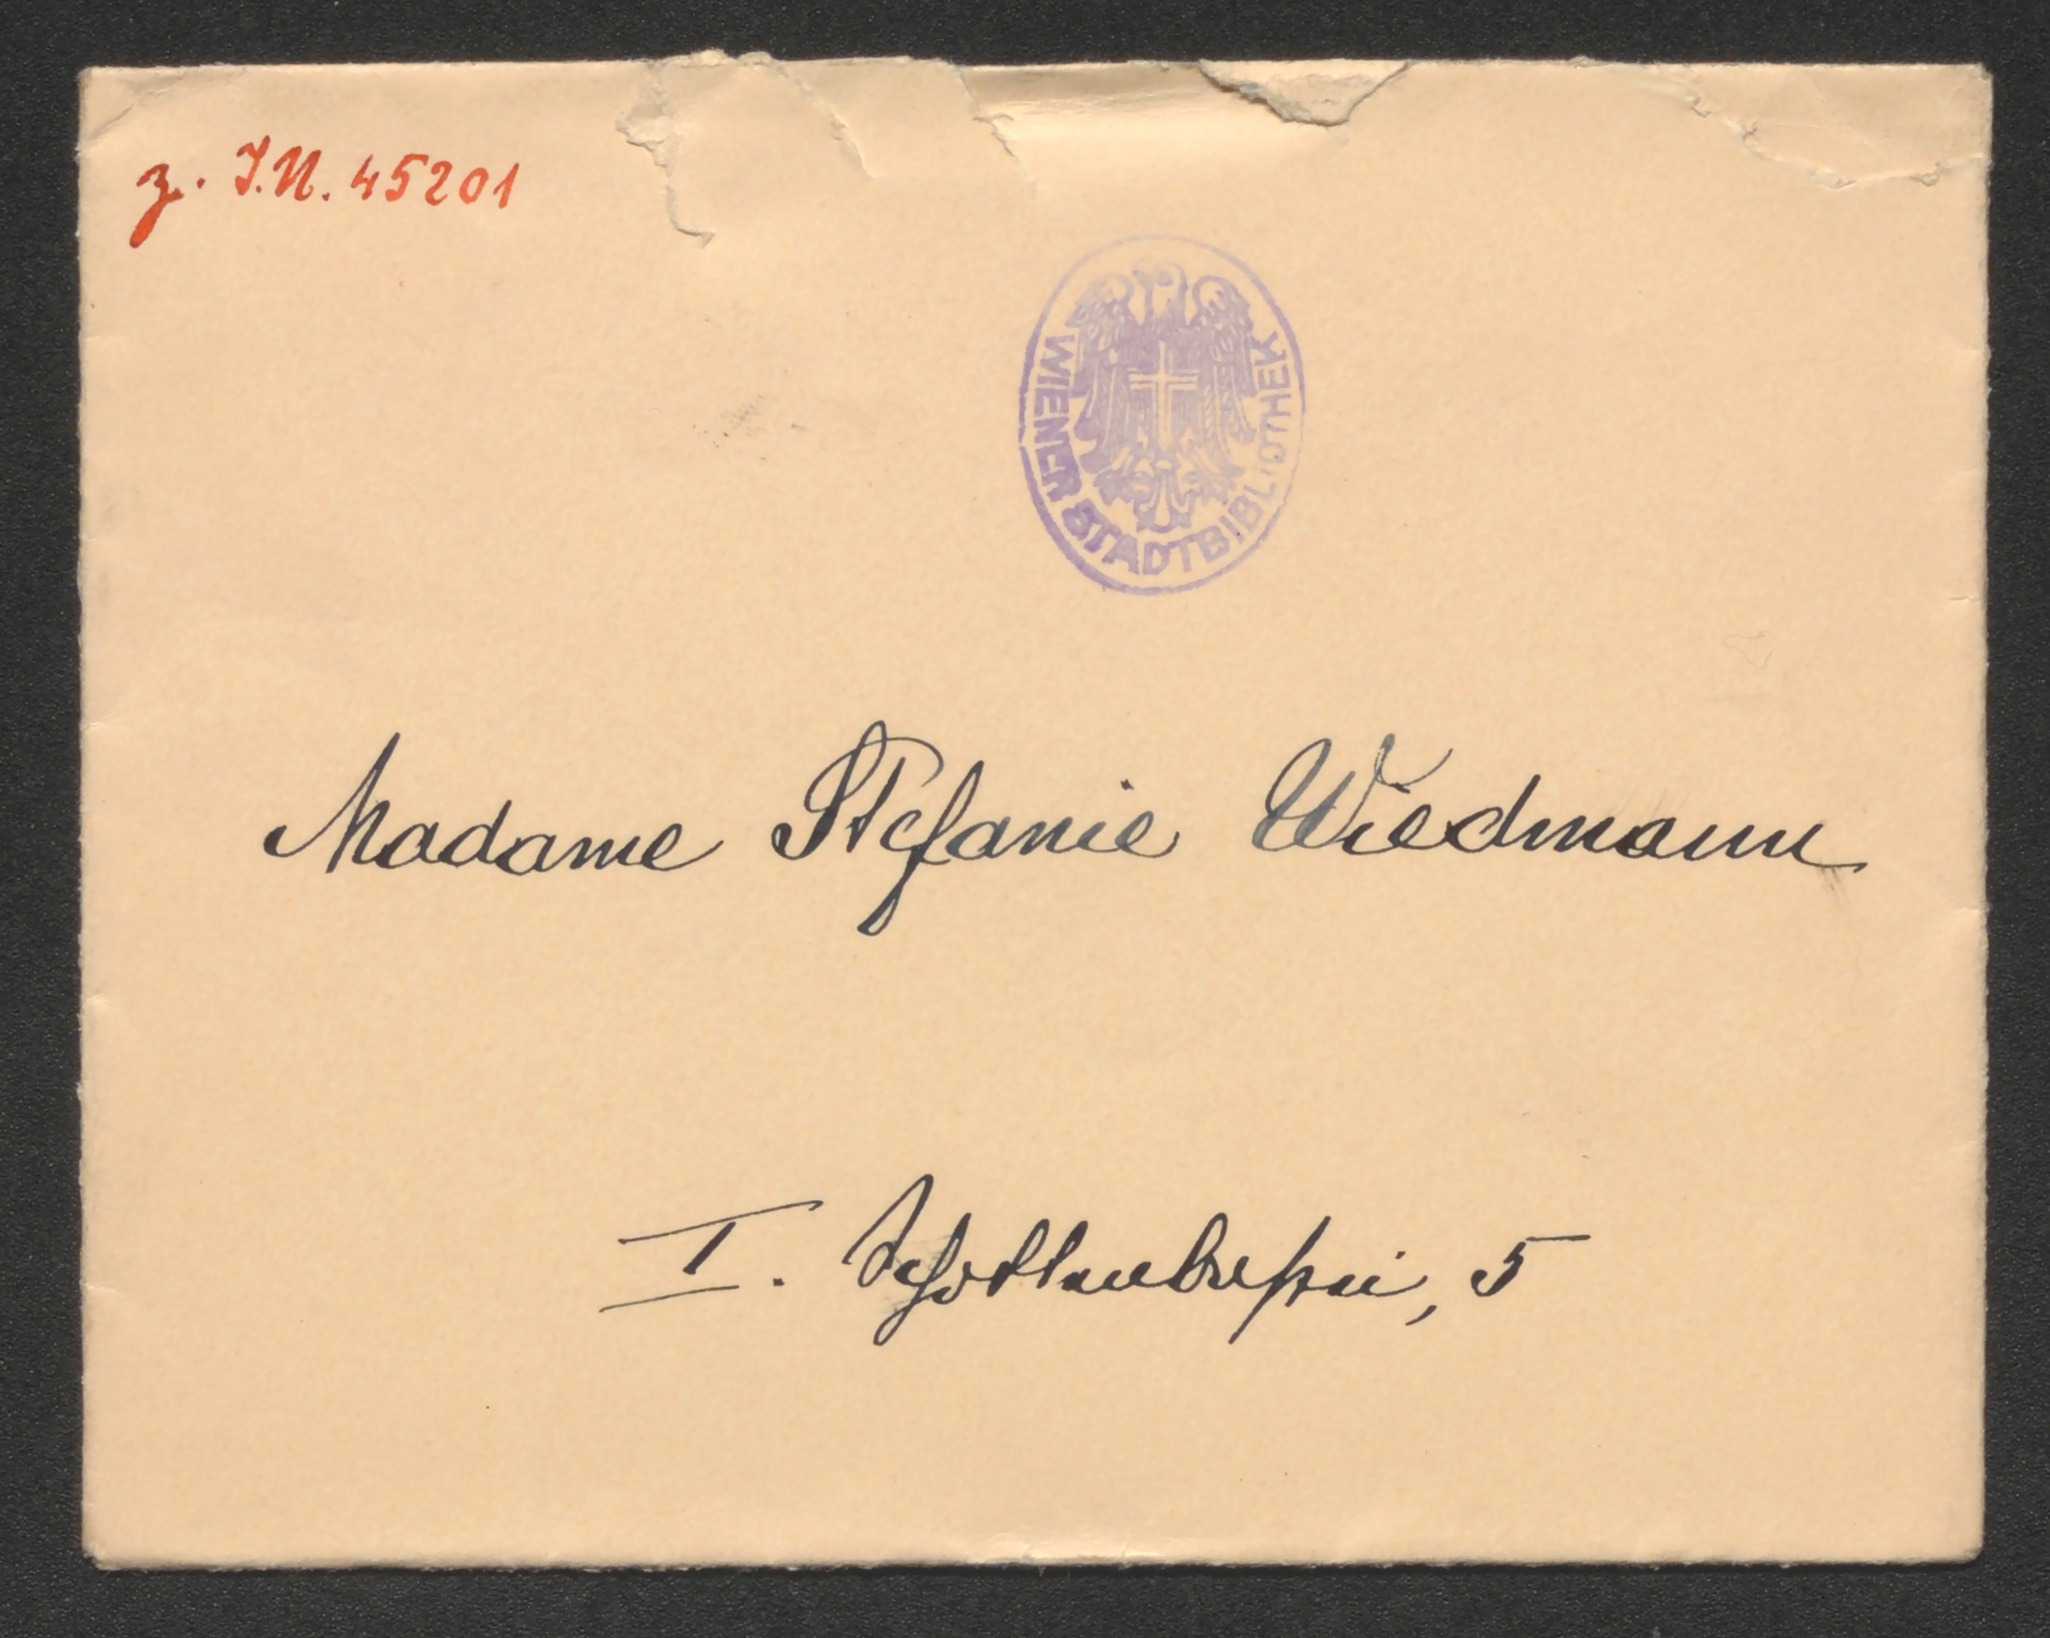 z. I.N. 45201
WIENER STADTBIBLIOTHEK
Madame Stefanie Wiedmann
I. Schottenbastei, 5